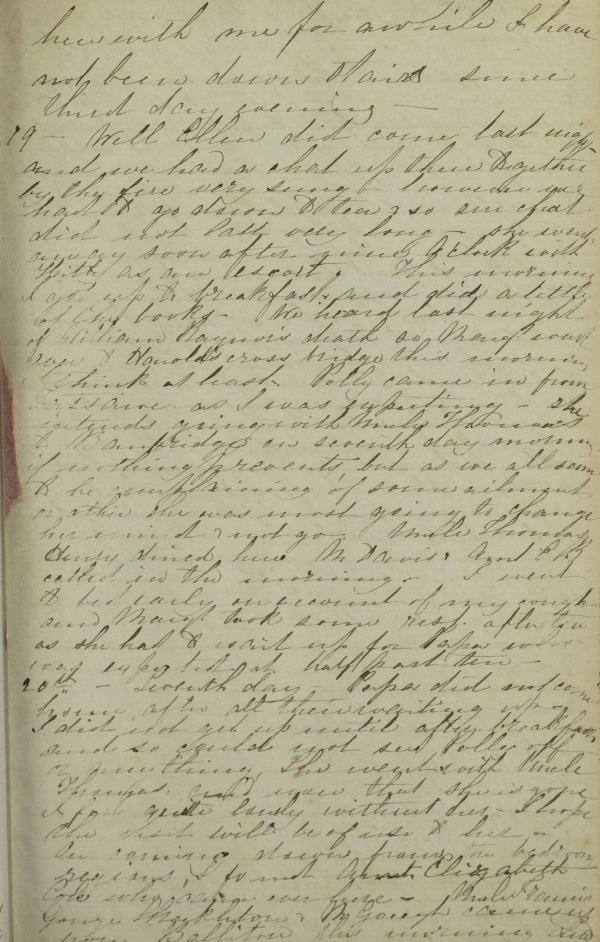 her with me for awhile I have
not been down stairs since
third day evening —
19 — Well Ellen did come last night
and we had a chat up there together
by the fire very snug — however we
had to go down to tea & so our chat
did not last very long — she went
away soon after nine o'clock with
as an escort. This morning
I got up to breakfast and did a little
of books — We heard last night
of William death so Marg.t went
over to Harold's cross bridge this morning
I think at least. Polly came in from
as I was — she
intends going with Uncle Thomas
to Banbridge on seventh day morning
if nothing prevents but as we all seem
to be complaining of some ailment
or other she was most going to change
her mind & not go. Uncle Thomas
Henry dined here M Davis & Aunt E
called in the morning. I went
to bed early on account of my cough
and Marg.t took some rest after tea
as she had to wait up for Papa who
was expected at half past ten —
20th — Seventh day Papa did not come
home after all their waiting up —
I did not get up until after breakfast
and so could not see Polly off
or anything, She went with Uncle
Thomas and now that she is gone
I feel quite lonely without her — I hope
the visit will be of use to her —
On coming down from the bedroom
regions, I found Aunt Elizabeth
who over here — Uncle Francis
came up
from this morning and